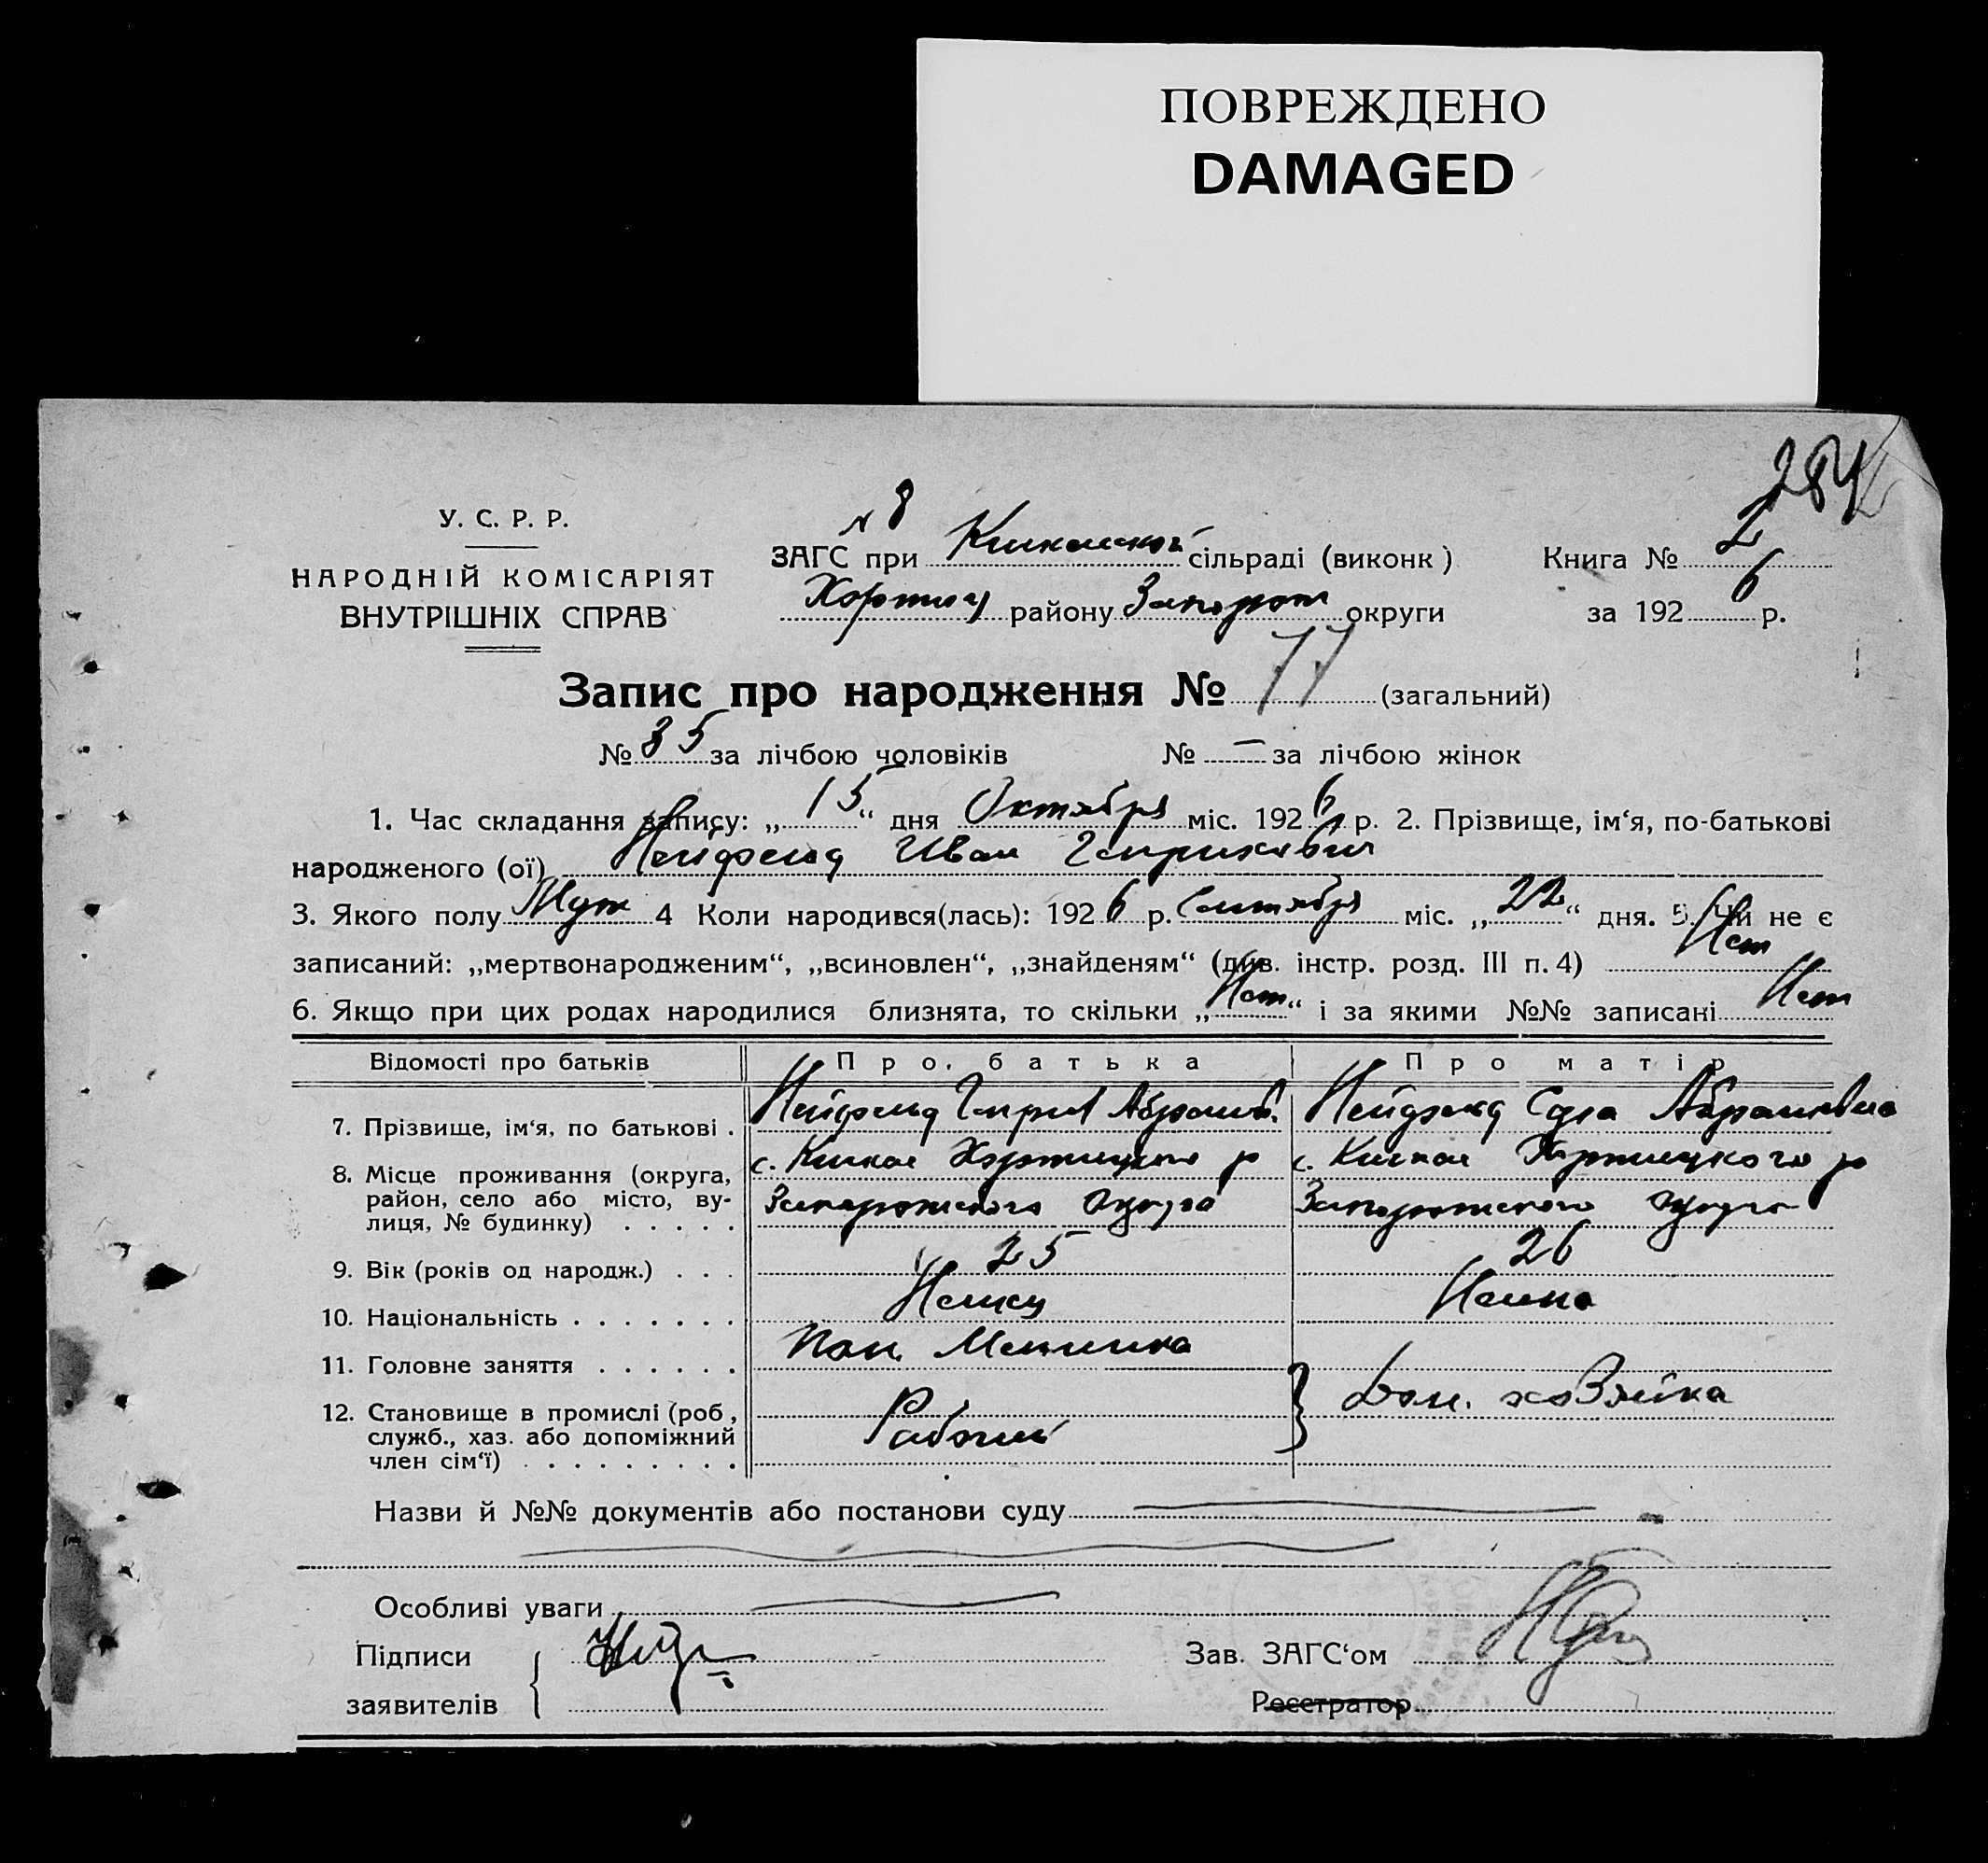 ПОВРЕЖДЕНО
DAMAGED
284
У. С. Р. Р.
НАРОДНІЙ КОМІСАРІЯТ
ВНУТРІШНІХ СПРАВ
N 8
ЗАГС при Кичкасской сільраді (виконк) Книга № 2
Хортиц району Запорож округи за 1926 р.
Запис про народження № 77 (загальний)
№ 35 за лічбою чоловіків № – за лічбою жінок
1. Час складання запису: „15“ дня Октября міс. 1926 р. 2. Прізвище, ім‘я, по-батькові
народженого (ої) Нейфельд Иван Генрихович
3. Якого полу Муж 4 Коли народився(лась): 1926 р. Сентября міс. „22“ дня. 5. Чи не є
записаний: „мертвонародженим“, „всиновлен“, „знайденям“ (див. інстр. розд. III п. 4) Нет
6. Якщо при цих родах народилися близнята, то скільки „Нет“ і за якими №№ записані Нет
Відомості про батьків Про батька Про матір
7. Прізвище, ім‘я, по батькові . Нейфельд Генрих Абрамов. Нейфельд Абрамовна
8. Місце проживання (округа, район, село або місто, вулиця, № будинку) . . . . .
с. Кичкас Хортицкого р Запорожского округа
с. Кичкас Хортицкого р Запорожского округа
9. Вік (років од народж.) . . . 25 26
10. Національність . . . . . . . Немец Немка
11. Головне заняття . . . . . .
12. Становище в промислі (роб, служб., хаз. або допоміжний член сім‘ї) . . . . . . . . .
Рабочий
Дом. хозяйка
Назви й №№ документів або постанови суду
Особливі уваги
Підписи заявителів
Зав. ЗАГС‘ом
Реєстратор